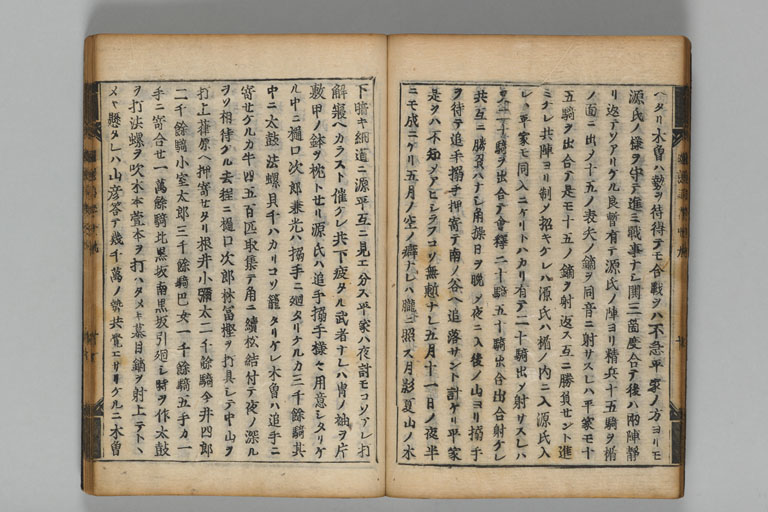 ヘタリ木曽ハ勢ヲ待得テモ合戦ヲハ不急平家ノ方ヨリモ
源氏ノ様ヲ守テ進ミ戦事ナレ閧三箇度合テ後ハ兩陣静
リ返テソアリケル良暫有テ源氏ノ陣ヨリ精兵十五騎ヲ楯
ノ面ニ出ノ十五ノ表矢ノ鏑ヲ同音ニ射サスレハ平家モ十
五騎ヲ出合テ是モ十五ノ鏑ヲ射返ス互ニ勝負セント進
ミケレ共陣ヨリ制メ招キケレハ源氏ハ楯ノ内ニ入源氏入
レハ平家モ同入ニケリトハカリ有テ二十騎出メ射サスレハ
又二十騎ヲ出合テ會釋二十騎五十騎出合出合射ケレ
共互ニ勝負ハナレ角操日ヲ晩ノ夜ニ入後ノ山ヨリ搦手
ヲ待テ追手搦手押寄テ南ノ谷ヘ追落サント計ケリ平家
是ヲハ不知メアヒシラフコソ無慙ナレ五月十一日ノ夜半
ニモ成ニケリ五月ノ空ノ癖ナレハ朧ニ照ス月影夏山ノ木
下暗キ細道ニ源平互ニ見エ分ス平家ハ夜討モコソアレ打
解寝ヘカラスト催ケレ共下疲タル武者ナレハ冑ノ袖ヲ片
敷甲ノ鉢ヲ枕トセリ源氏ハ追手搦手様々用意シタリケ
ル中ニ樋口次郎兼光ハ搦手ニ廻タリケルカ三千餘騎其
中ニ太鼓法螺貝千ハカリコソ籠タリケレ木曽ハ追手ニ
寄セケルカ牛四五百匹取集テ角ニ續松結付テ夜ノ深ル
ヲソ相待ケル去程ニ樋口次郎林富樫ヲ打具シテ中山ヲ
打上葎原ヘ押寄セタリ根井小彌太二千餘騎今井四郎
二千餘騎小室太郎三千餘騎巴女一千餘騎五手カ一
手ニ寄合セ一萬餘騎北黒坂南黒坂引廻シ時ヲ作太鼓
ヲ打法螺ヲ吹木本萱本ヲ打ハタメキ蟇目鏑ヲ射上テトヽ
メキ懸タレハ山彦答テ幾千萬ノ勢共覺エサリケルニ木曽